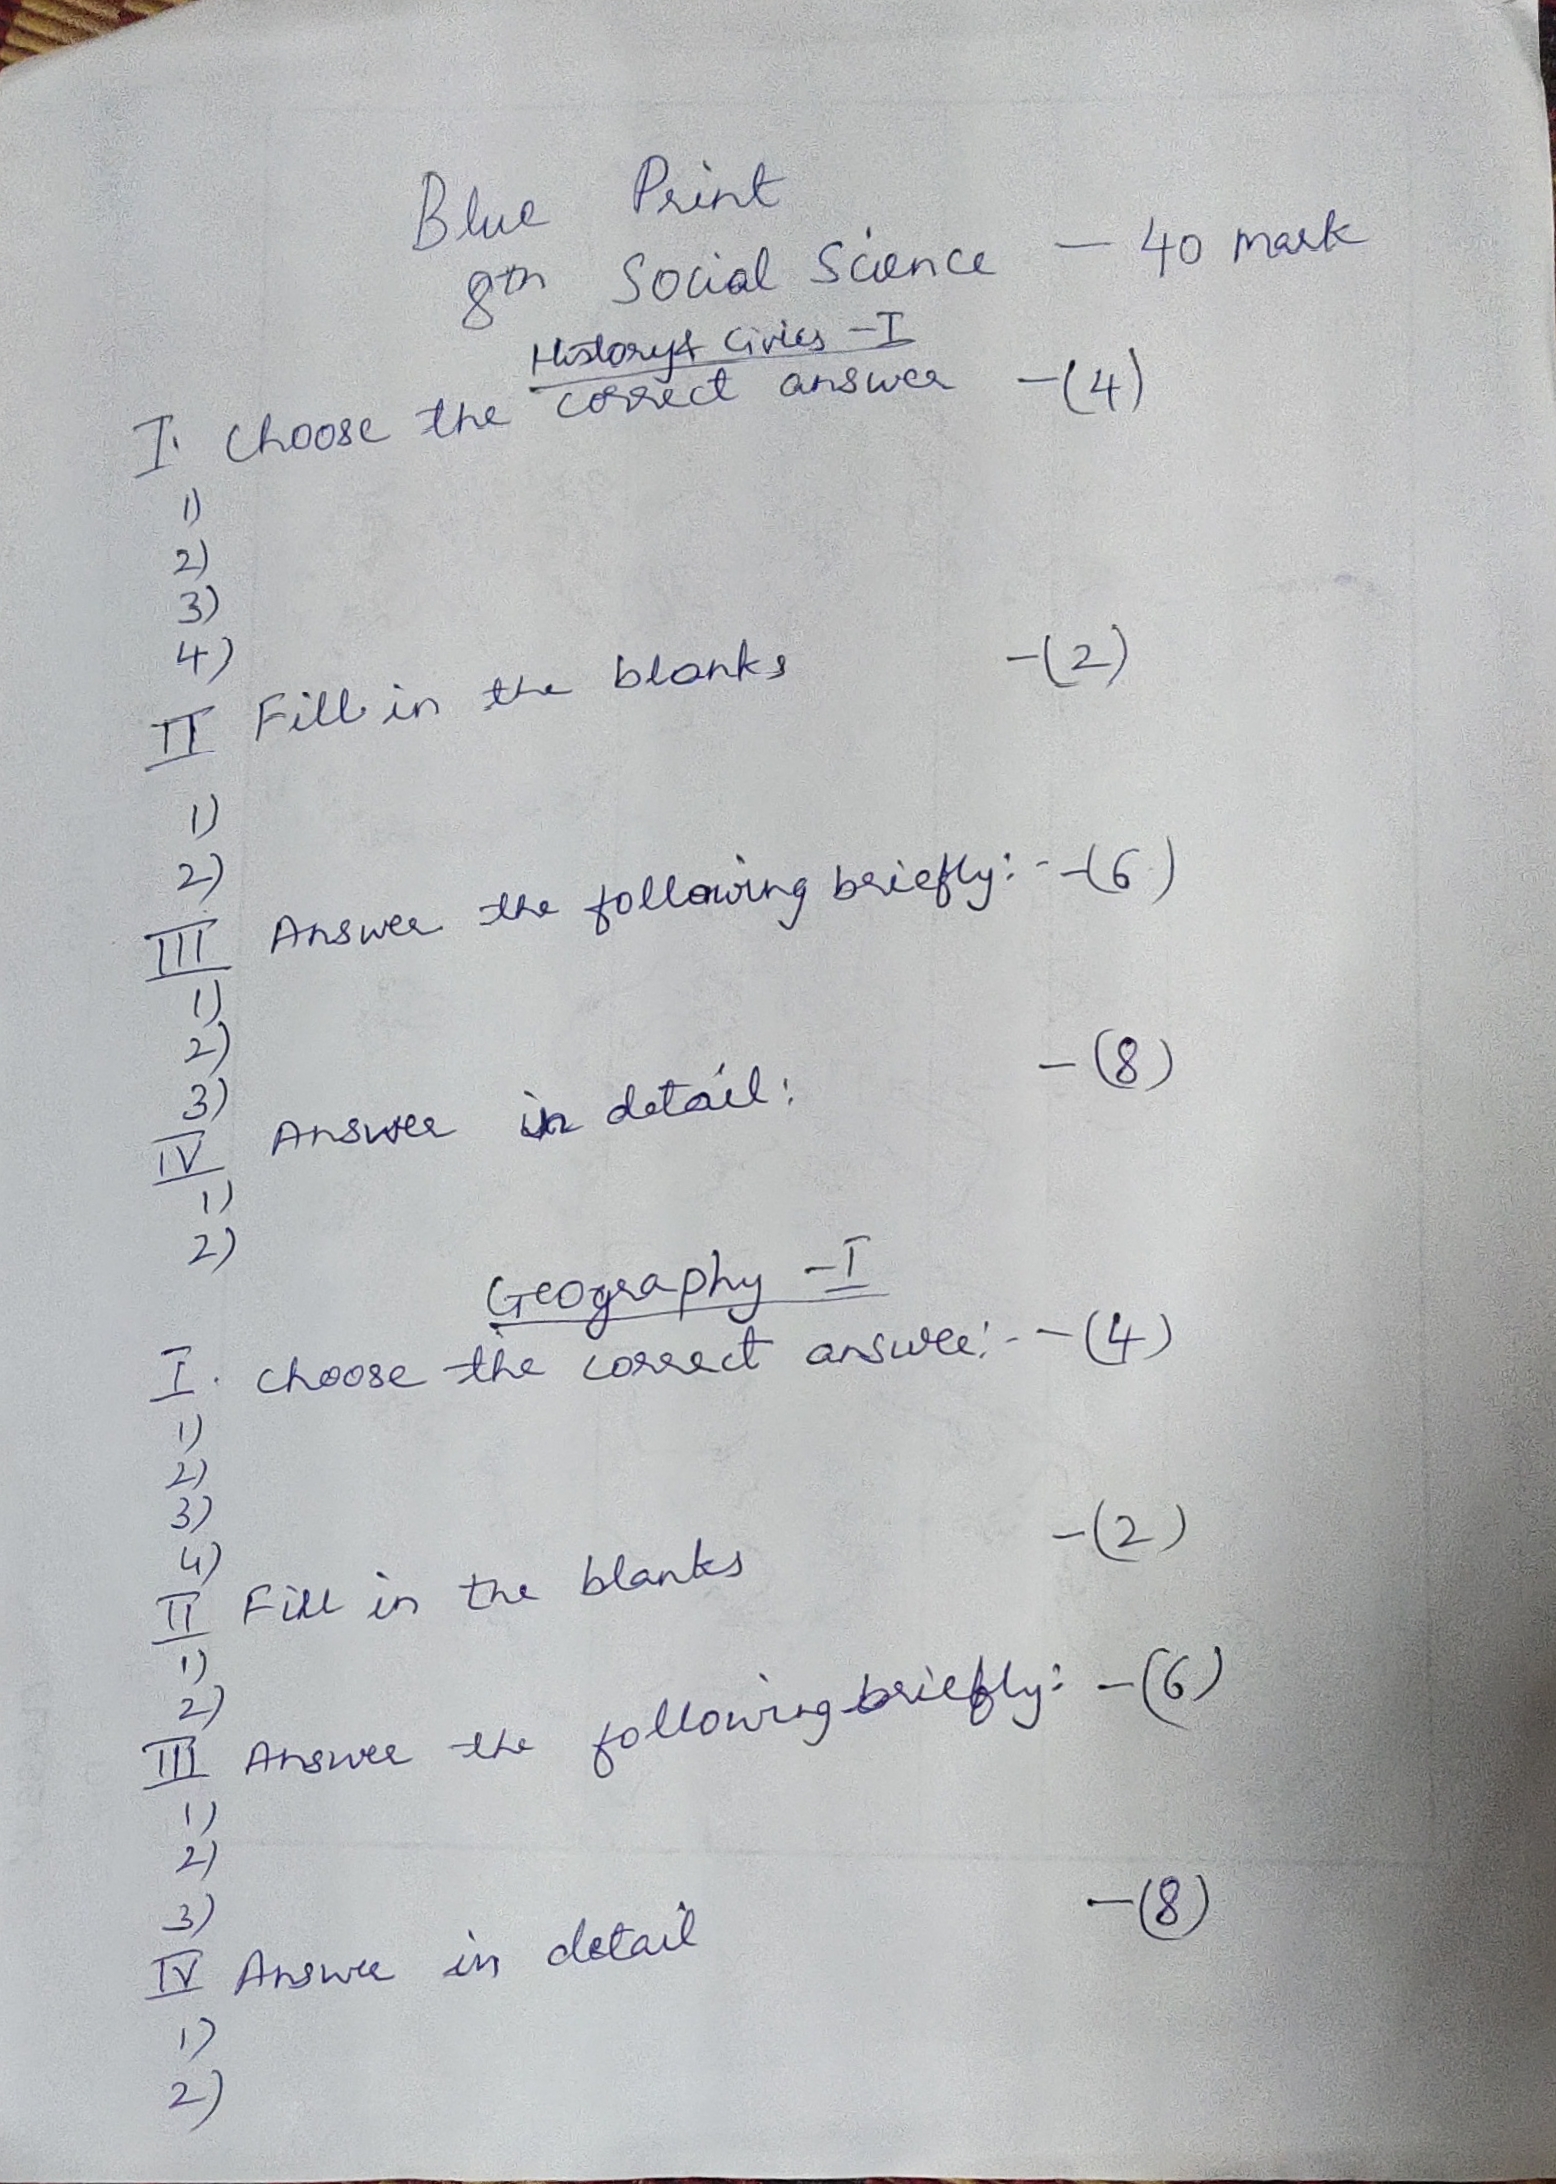 Blue Print
8th Social Science - 40 mark
History & Civics - I
I. Choose the correct answer - (4)
1)
2)
3)
4)
II Fill in the blanks - (2)
1)
2)
III Answer the following briefly: - - (6)
1)
2)
3)
IV Answer in detail: - (8)
1)
2)
Geography - I
I. Choose the correct answer: - - (4)
1)
2)
3)
4)
II Fill in the blanks - (2)
1)
2)
III Answer the following briefly: - (6)
1)
2)
3)
IV Answer in detail - (8)
1)
2)